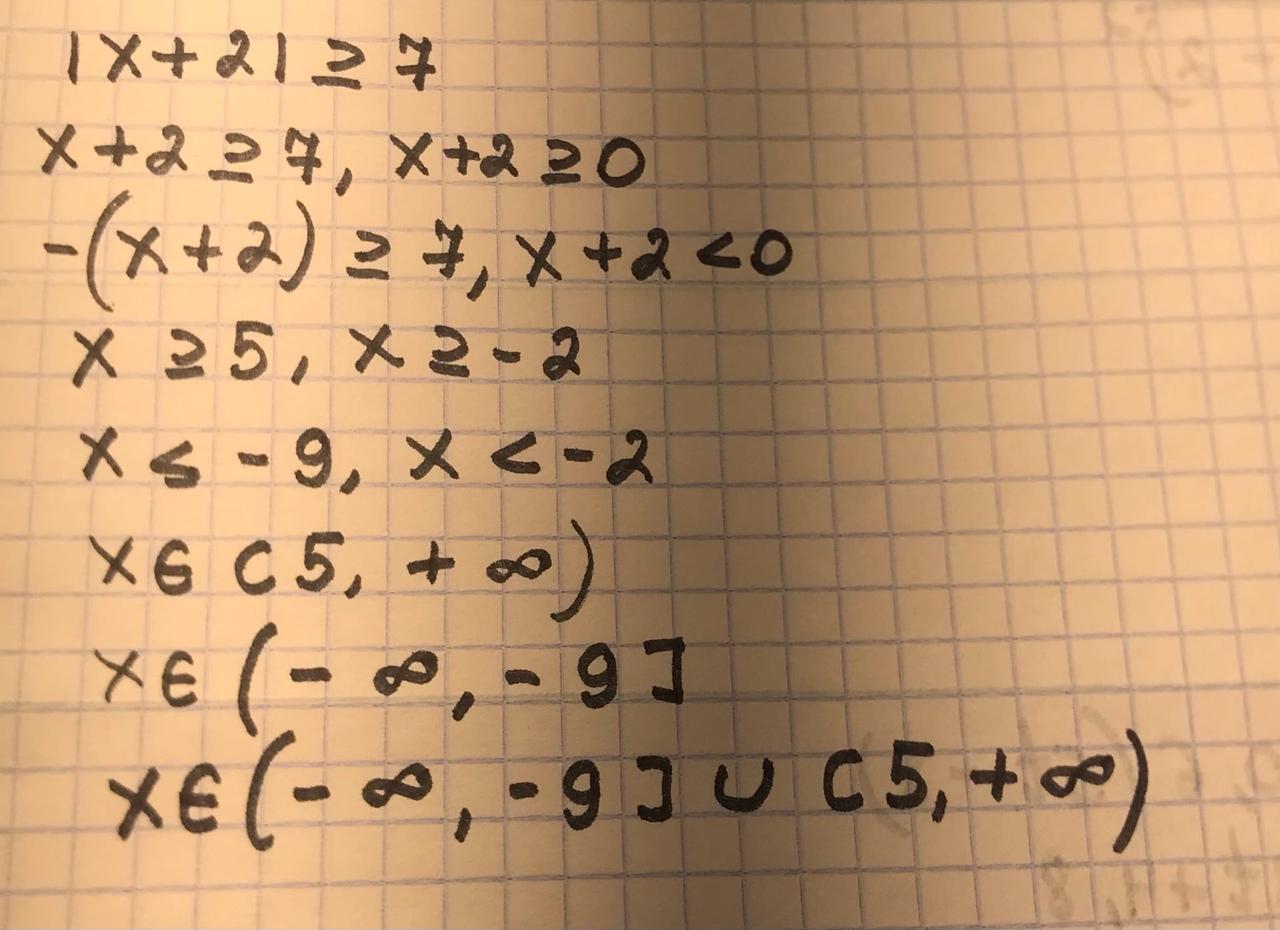 |x+2| ≥ 7
x+2 ≥ 7, x+2 ≥ 0
-(x+2) ≥ 7, x+2 < 0
x ≥ 5, x ≥ -2
x ≤ -9, x < -2
x ∈ [5, +∞)
x ∈ (-∞, -9]
x ∈ (-∞, -9] ∪ [5, +∞)